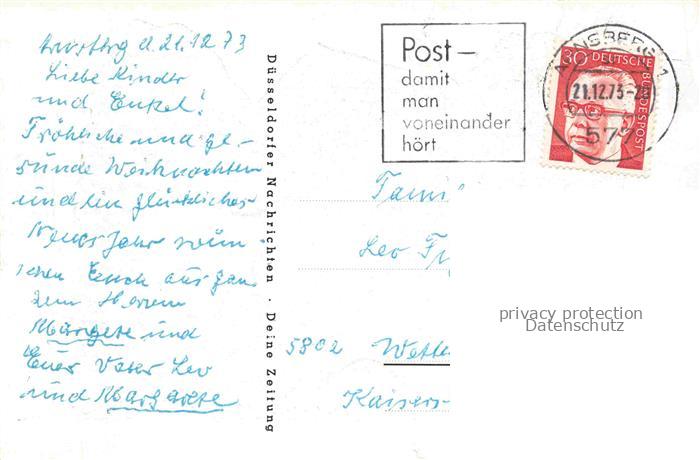 Arnsberg d. 21.12.73
Liebe Kinder
und Enkel!
Fröhliche und ge-
sunde Weihnachten
und ein glückliches
Neues Jahr wün-
schen Euch aus gan-
zem Herzen
Margrete und
Euer Vater Leo
und Margarete
Düsseldorfer Nachrichten · Deine Zeitung
Post –
damit
man
voneinander
hört
ARNSBERG 1
21.12.73-2
577
30 DEUTSCHE BUNDESPOST
Fami
Leo
5802 Wette
Kaisers-
privacy protection
Datenschutz